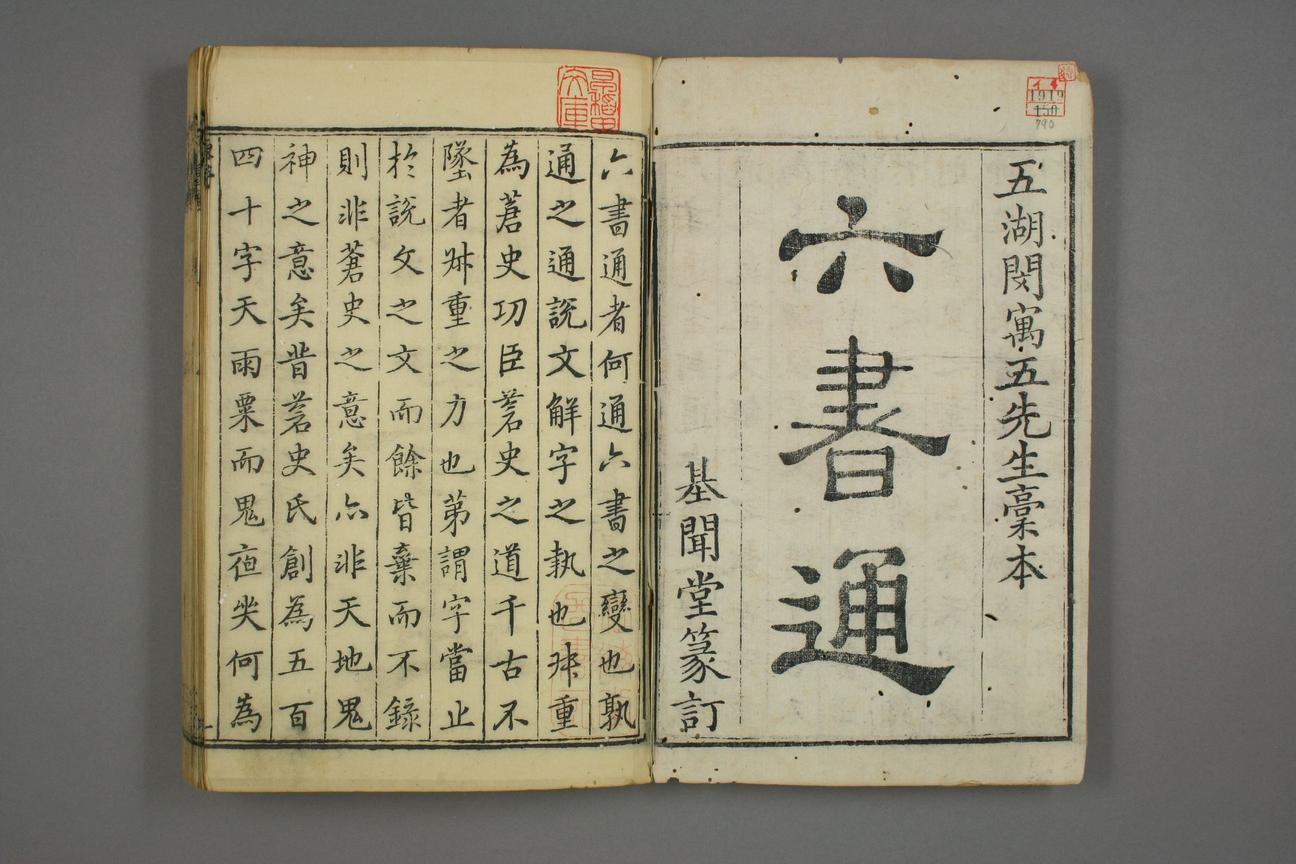 五湖閔寓五先生稾本
六書通
基聞堂篆訂
六書通者何通六書之變也孰
通之通說文解字之執也叔重
為蒼史功臣蒼史之道千古不
墜者叔重之力也苐謂字當止
於說文之文而餘皆棄而不錄
則非蒼史之意矣亦非天地鬼
神之意矣昔蒼史氏創為五百
四十字天雨粟而鬼夜哭何為
早稲田
文庫
イ 4
1919
150
790